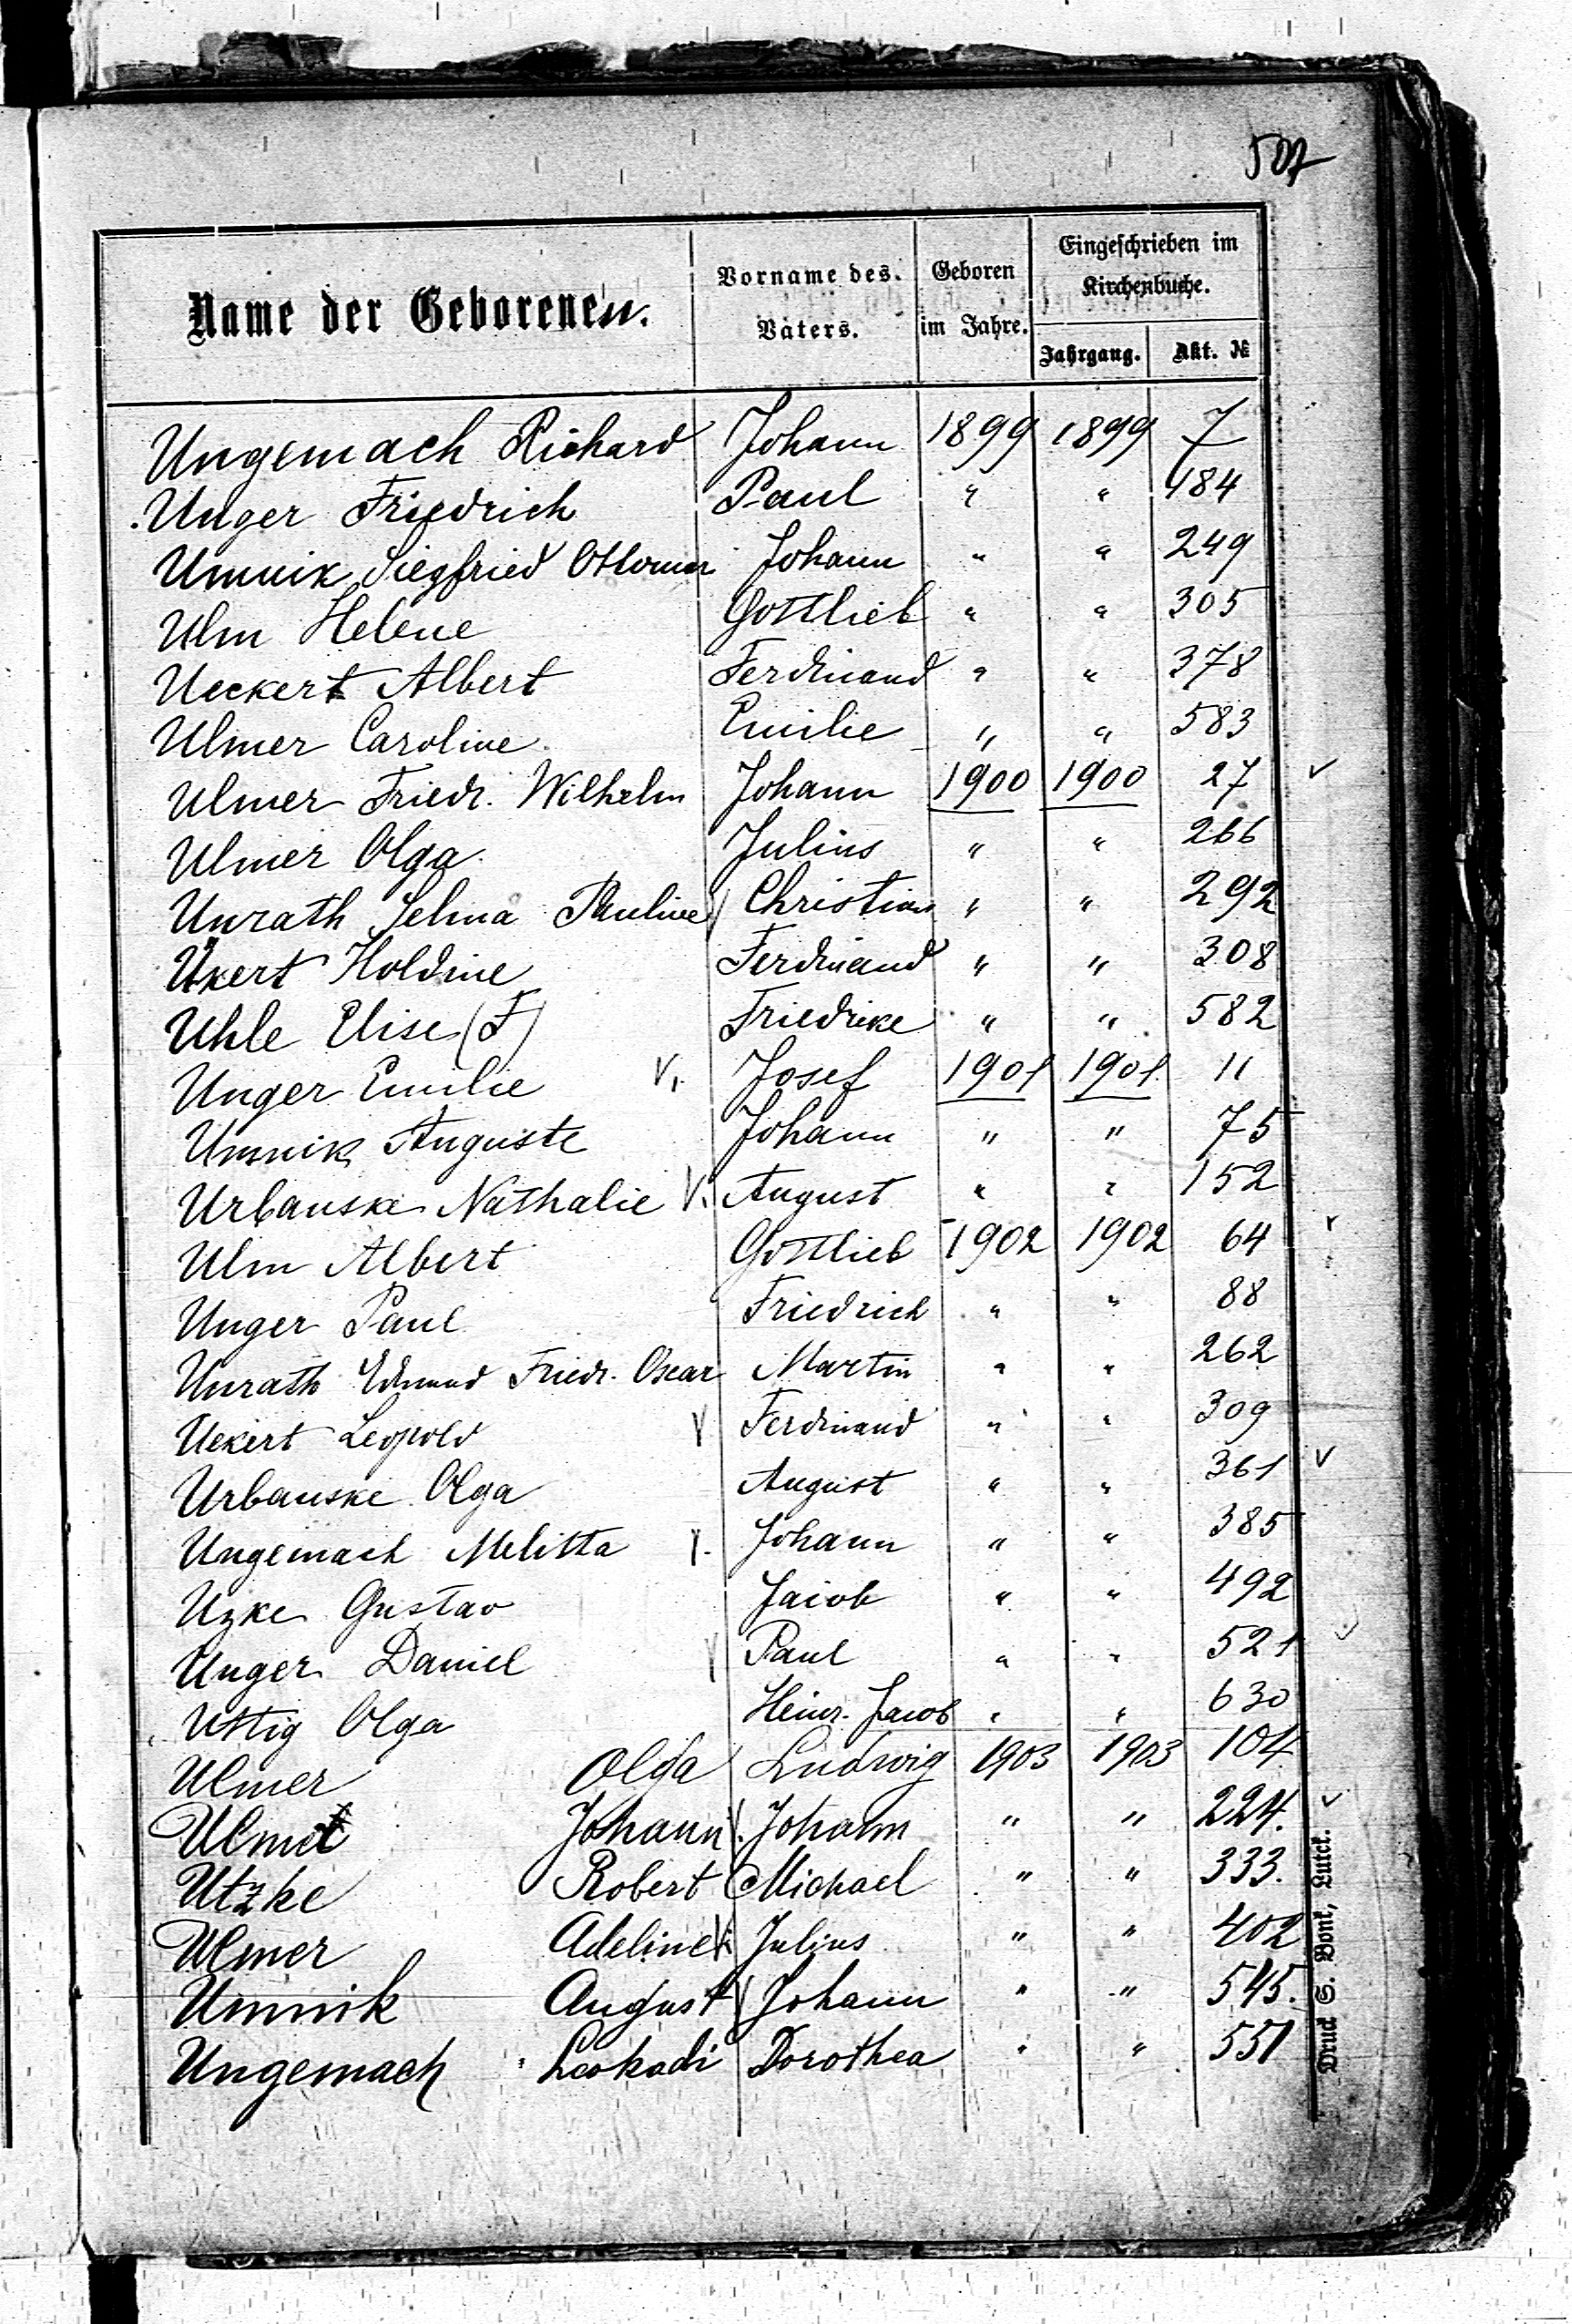 507
Name der Geborenen.
Vorname des Vaters.
Geboren im Jahre.
Eingeschrieben im Kirchenbuche.
Jahrgang.
Akt. №
Ungemach Richard Johann 1899 1899 7
Unger Friedrich Paul " " 184
Umnik Siegfried Ottomar Johann " " 249
Ulm Helene Gottlieb " " 305
Ueckert Albert Ferdinand " " 378
Ulmer Caroline Emilie " " 583
Ulmer Friedr. Wilhelm Johann 1900 1900 27 v
Ulmer Olga Julius " " 266
Unrath Selma Pauline Christian " " 292
Ükert Holdine Ferdinand " " 308
Uhle Elise (F) Friedrike " " 582
Unger Emilie V. Josef 1901 1901 11
Umnik Auguste Johann " " 75
Urbanske Nathalie V. August " " 152
Ulm Albert Gottlieb 1902 1902 64 v
Unger Paul Friedrich " " 88
Unrath Edmund Friedr. Oscar Martin " " 262
Uekert Leopold V Ferdinand " " 309
Urbanske Olga August " " 361 v
Ungemach Melitta V. Johann " " 385
Uzke Gustav Jacob " " 492
Unger Daniel V Paul " " 521 v
Uttig Olga Heinr. Jacob " " 630
Ulmer Olga Ludwig 1903 1903 104
Johann V. Johann " " 224. v
Utzke Robert Michael " " 333.
Ulmer Adeline V. Julius " " 402
Umnik August V Johann " " 545.
Ungemach Leokadi Dorothea " " 551
Druck S. Bonk, Lutck.